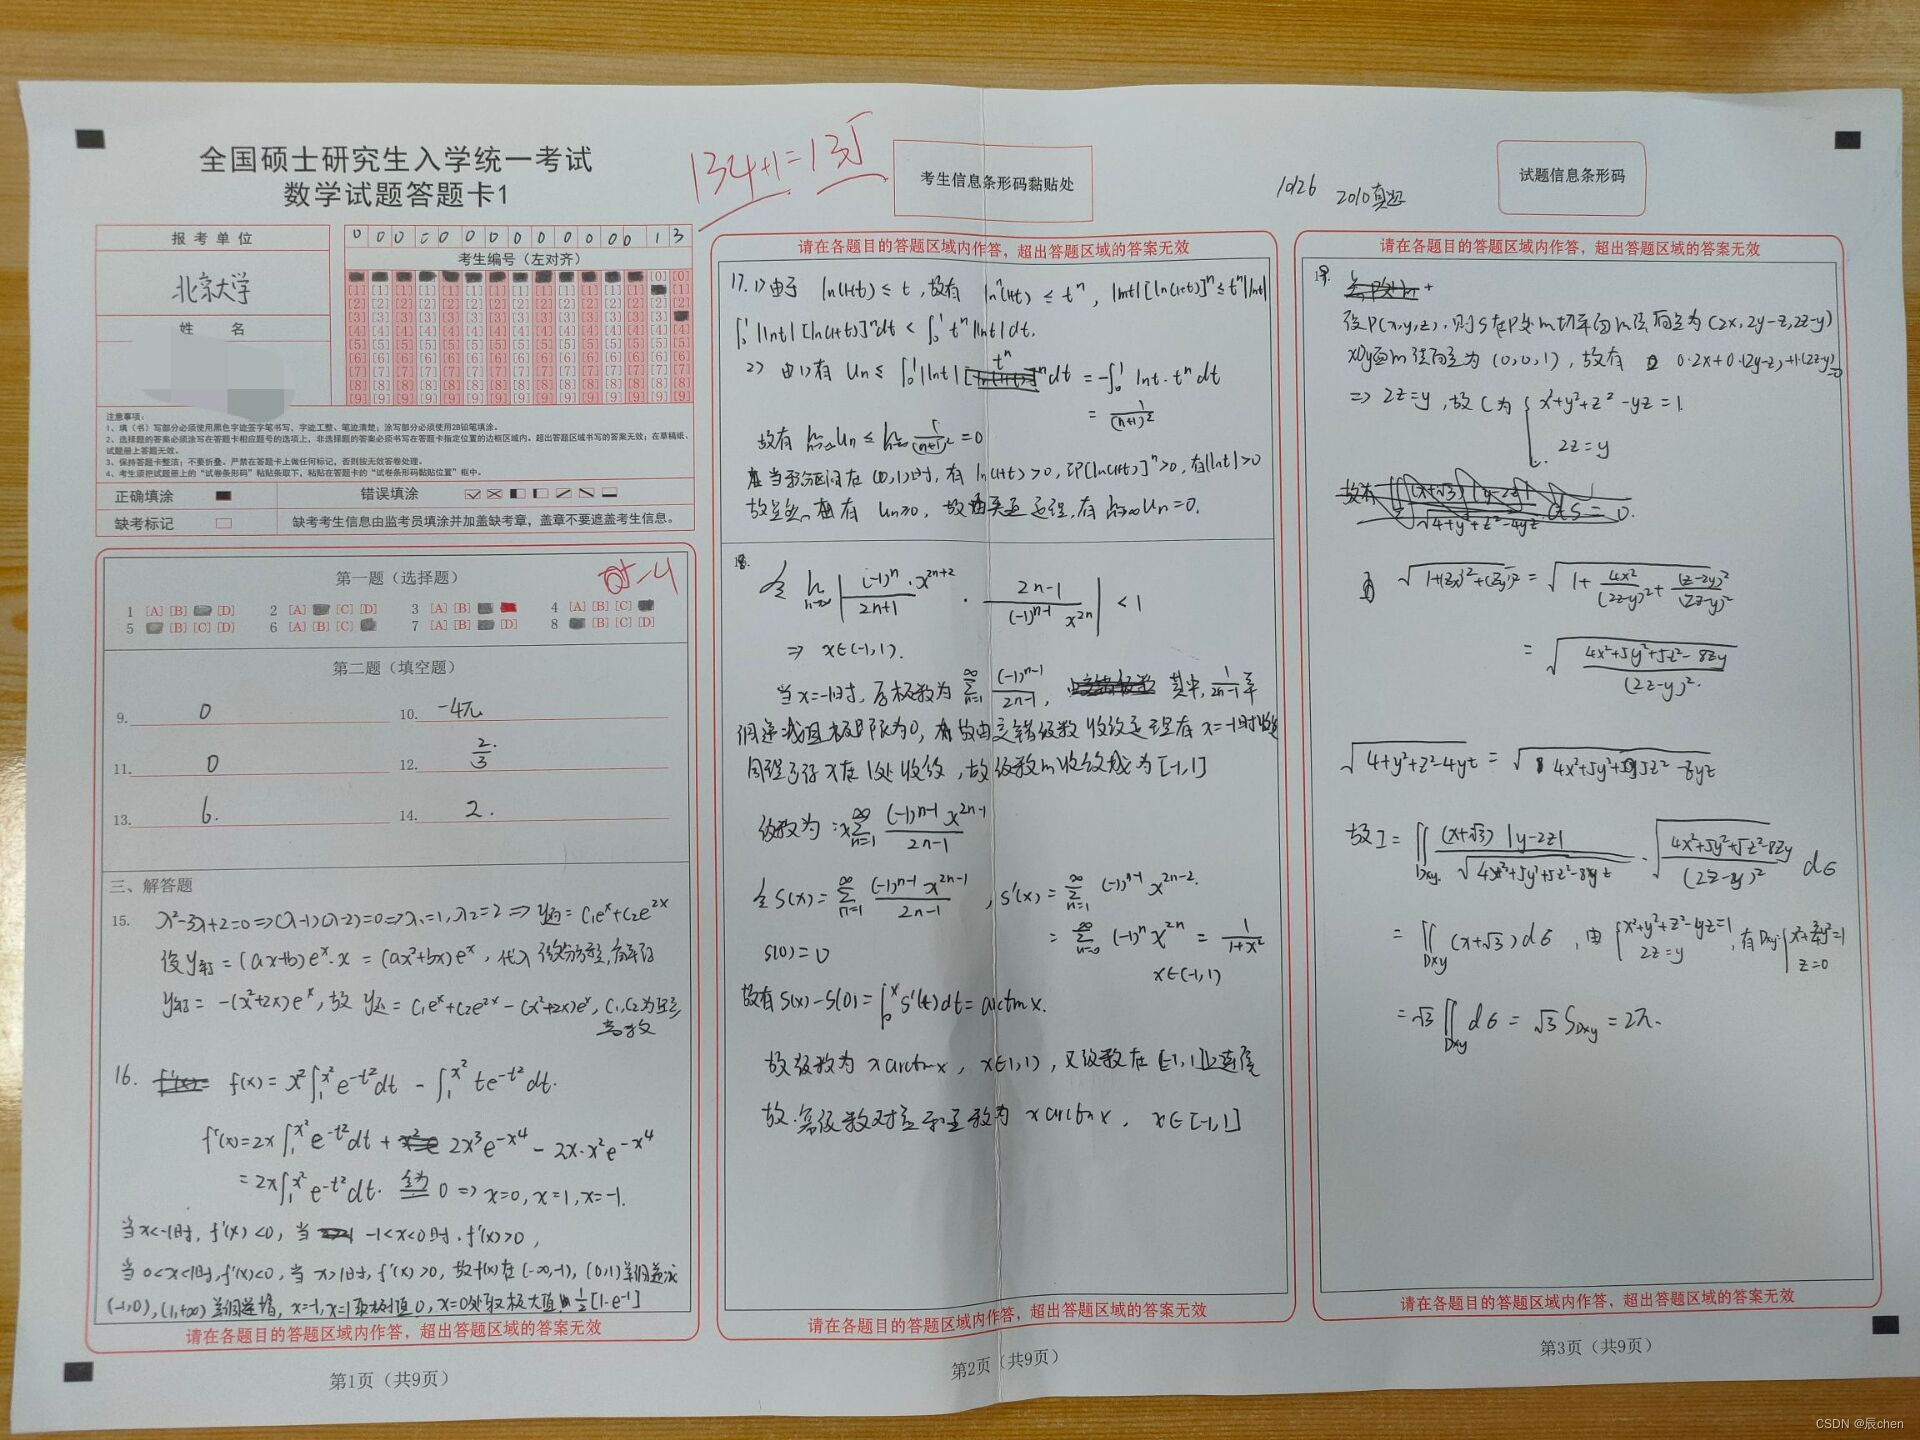 全国硕士研究生入学统一考试
数学试题答题卡1
134+1=135
考生信息条形码黏贴处
10/26 2010真题
试题信息条形码
报考单位
北京大学
姓 名
0 0 0 0 0 0 0 0 0 0 0 0 0 1 3
考生编号（左对齐）
注意事项：
1、填（书）写部分必须使用黑色字迹签字笔书写，字迹工整、笔迹清楚；涂写部分必须使用2B铅笔填涂。
2、选择题的答案必须涂写在答题卡相应题号的选项上，非选择题的答案必须书写在答题卡指定位置的边框区域内。超出答题区域书写的答案无效；在草稿纸、
试题册上答题无效。
3、保持答题卡整洁；不要折叠。严禁在答题卡上做任何标记，否则按无效答卷处理。
4、考生须把试题册上的“试卷条形码”粘贴条取下，粘贴在答题卡的“试卷条形码黏贴位置”框中。
正确填涂 错误填涂
缺考标记 缺考考生信息由监考员填涂并加盖缺考章，盖章不要遮盖考生信息。
第一题（选择题）
-4
1 [A] [B] [D] 2 [A] [C] [D] 3 [A] [B] 4 [A] [B] [C]
5 [B] [C] [D] 6 [A] [B] [C] 7 [A] [B] [D] 8 [B] [C] [D]
第二题（填空题）
9. 0 10. -4π
11. 0 12. 2/3
13. 6. 14. 2.
三、解答题
15. λ²-3λ+2=0=>(λ-1)(λ-2)=0=>λ₁=1,λ₂=2 => y通=C₁eˣ+C₂e²ˣ
设y特=(ax+b)eˣ·x=(ax²+bx)eˣ, 代入微分方程, 解得
y特=-(x²+2x)eˣ, 故 y通=C₁eˣ+C₂e²ˣ-(x²+2x)eˣ, C₁,C₂为任意
常数
16. f(x)=x²∫₁^{x²}e^{-t²}dt - ∫₁^{x²}te^{-t²}dt.
f'(x)=2x∫₁^{x²}e^{-t²}dt + 2x³e^{-x⁴} - 2x·x²e^{-x⁴}
=2x∫₁^{x²}e^{-t²}dt. 令为 0 => x=0, x=1, x=-1.
当x<-1时, f'(x)<0, 当 -1<x<0时, f'(x)>0,
当0<x<1时, f'(x)<0, 当 x>1时, f'(x)>0, 故f(x)在(-∞,-1), (0,1)单调递减
(-1,0), (1,+∞)单调递增, x=-1,x=1取极小值0, x=0处取极大值 ½[1-e⁻¹]
请在各题目的答题区域内作答，超出答题区域的答案无效
第1页（共9页）
请在各题目的答题区域内作答，超出答题区域的答案无效
17. 1)由于 ln(1+t) ≤ t, 故有 lnⁿ(1+t) ≤ tⁿ, |lnt|[ln(1+t)]ⁿ≤tⁿ|lnt|
∫₀¹|lnt|[ln(1+t)]ⁿdt < ∫₀¹tⁿ|lnt|dt.
2) 由1)有 Un ≤ ∫₀¹|lnt| tⁿ dt = -∫₀¹ lnt·tⁿdt
= 1/(n+1)²
故有 lim_{n→∞}Un ≤ lim_{n→∞} 1/(n+1)² = 0
当积分区间在(0,1)时, 有 ln(1+t)>0, 即[ln(1+t)]ⁿ>0, 有|lnt|>0
有 Un≥0, 故由夹逼定理, 有 lim_{n→∞}Un=0.
18.
令 lim_{n→∞} |(-1)ⁿ·x^{2n+2}/(2n+1) · (2n-1)/((-1)^{n-1} x^{2n})| < 1
=> x∈(-1,1).
当x=-1时, 原级数为 Σ_{n=1}^∞ (-1)^{n-1}/(2n-1), 其中, 1/(2n-1)单
调递减且极限为0, 故由交错级数收敛定理有 x=-1时收敛
同理可得 x在1处收敛, 故级数的收敛域为[-1,1]
级数为: xΣ_{n=1}^∞ (-1)^{n-1}x^{2n-1}/(2n-1)
令S(x)=Σ_{n=1}^∞ (-1)^{n-1}x^{2n-1}/(2n-1), S'(x)=Σ_{n=1}^∞ (-1)^{n-1}x^{2n-2}.
S(0)=0 = Σ_{n=0}^∞ (-1)ⁿx^{2n} = 1/(1+x²)
x∈(-1,1)
故有S(x)-S(0)=∫₀ˣS'(t)dt=arctanx.
故级数为 xarctanx, x∈(-1,1), 又级数在[-1,1]上连续
故幂级数对应和函数为 xarctanx, x∈[-1,1]
请在各题目的答题区域内作答，超出答题区域的答案无效
第2页（共9页）
请在各题目的答题区域内作答，超出答题区域的答案无效
19.
设P(x,y,z), 则S在P处的切平面的法向量为(2x,2y-z,2z-y)
xOy面的法向量为(0,0,1), 故有 0·2x+0·(2y-z)+1·(2z-y)=0
=> 2z=y, 故C为 { x²+y²+z²-yz=1.
2z=y
√(1+(Zx')²+(Zy')²) = √(1+4x²/(2z-y)²+(z-2y)²/(2z-y)²)
= √((4x²+5y²+5z²-8zy)/(2z-y)²).
√(4+y²+z²-4yz) = √(4x²+5y²+5z²-8yz)
故I=∬_{Dxy} (x+√3)|y-2z|/√(4x²+5y²+5z²-8yz) · √((4x²+5y²+5z²-8zy)/(2z-y)²) dσ
=∬_{Dxy}(x+√3)dσ, 由{x²+y²+z²-yz=1 2z=y, 有Dxy:{x²+¾y²=1 z=0
=√3∬_{Dxy}dσ = √3S_{Dxy} = 2π.
请在各题目的答题区域内作答，超出答题区域的答案无效
第3页（共9页）
CSDN @辰chen